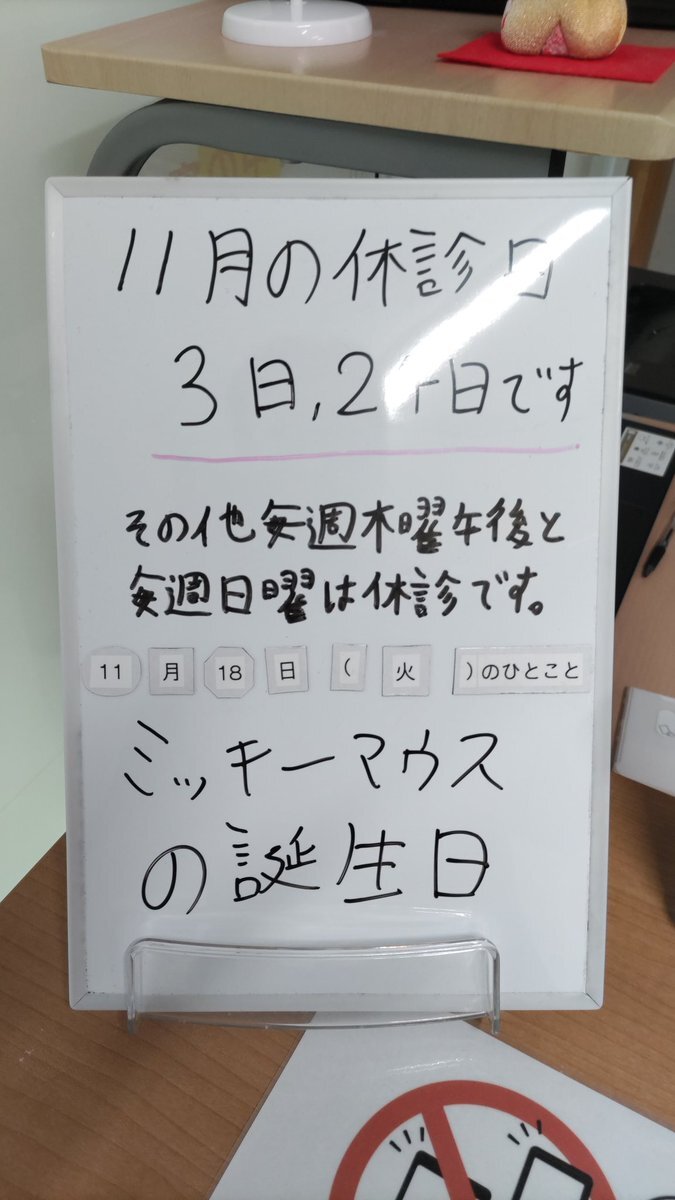 11月の休診日
3日,24日です
その他毎週木曜午後と
毎週日曜は休診です。
11月18日(火)のひとこと
ミッキーマウス
の誕生日